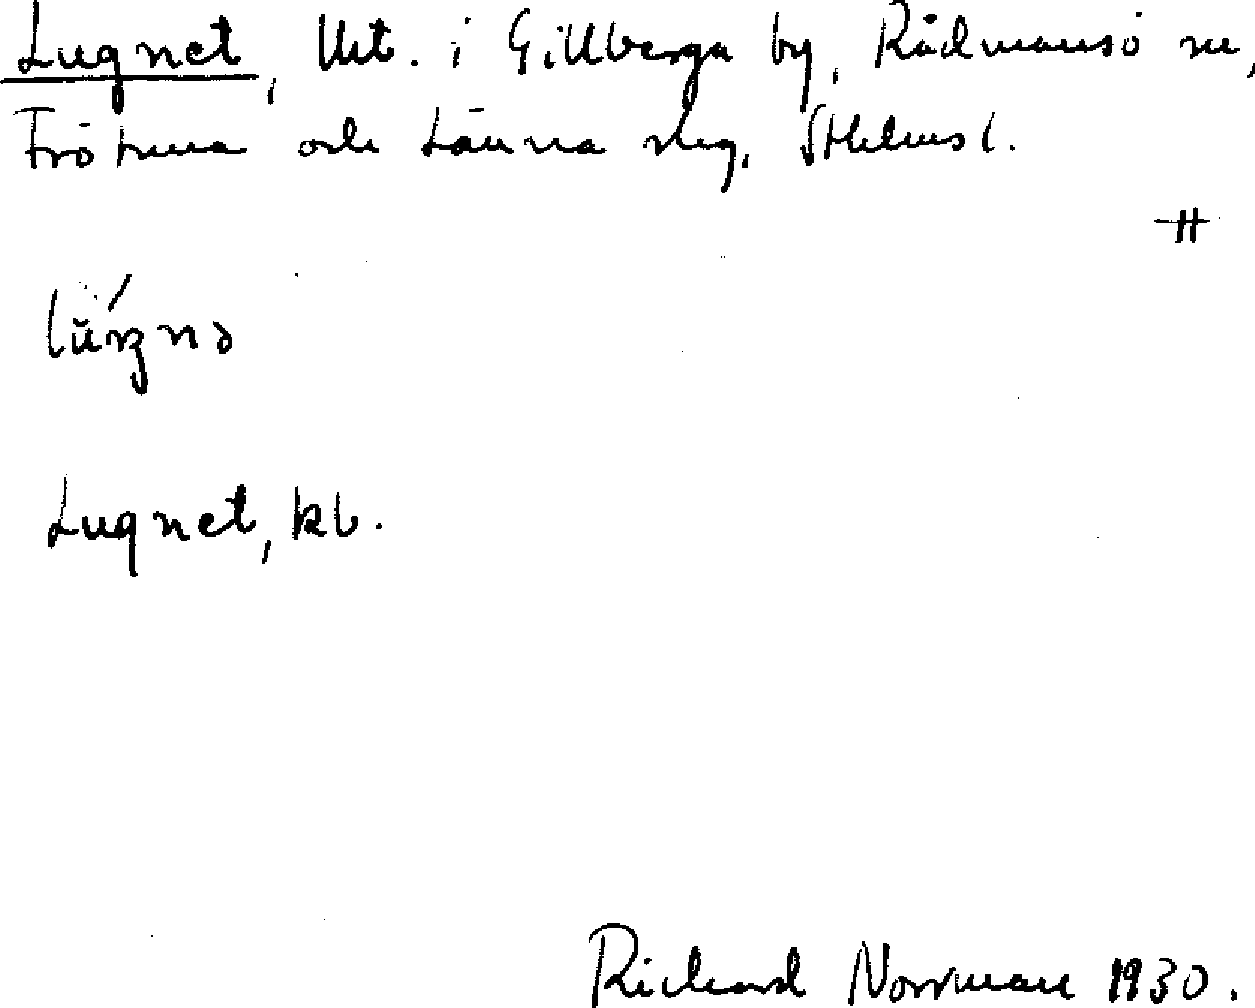 Lugnet, Utt. i Gillberga by, Rådmansö sn,
Frötuna och Länna skg, Sthlms l.
Lugnet, kb.
Richard Norrman 1930.